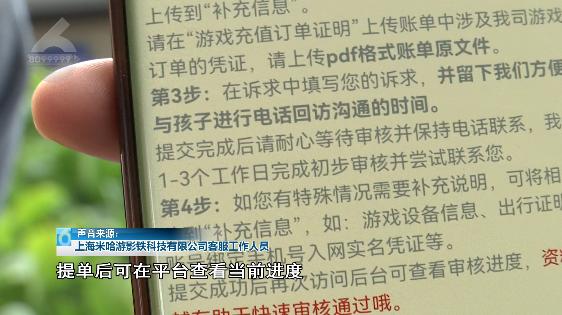 上传到“补充信息”。
请在“游戏充值订单证明”上传账单中涉及我司游戏
订单的凭证，请上传pdf格式账单原文件。
第3步：在诉求中填写您的诉求，并留下我们方便
与孩子进行电话回访沟通的时间。
提交完成后请耐心等待审核并保持电话联系，我
1-3个工作日完成初步审核并尝试联系您。
第4步：如您有特殊情况需要补充说明，可将相
到“补充信息”，如：游戏设备信息、出行证明
号入网实名凭证等。
提交成功后再次访问后台可查看审核进度，资料
越有助于快速审核通过哦。
8099999
声音来源：
上海米哈游影铁科技有限公司客服工作人员
提单后可在平台查看当前进度